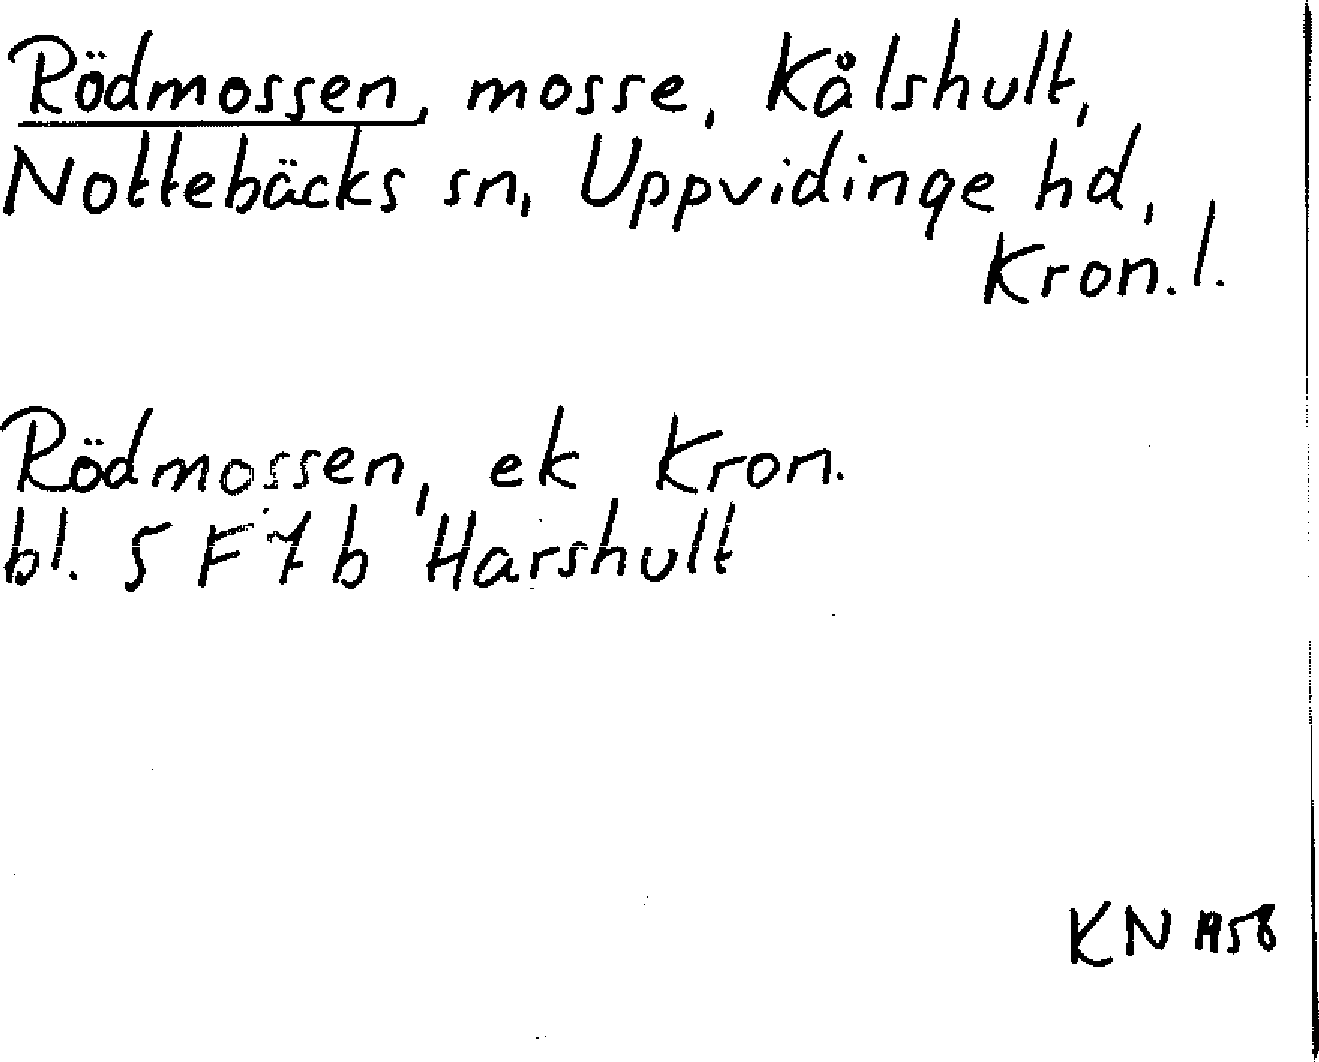 Rödmossen, mosse, Kålshult,
Nottebäcks sn, Uppvidinge hd,
Kron. l.
Rödmossen, ek Kron.
bl. 5 F 7 b Harshult
KN 1958